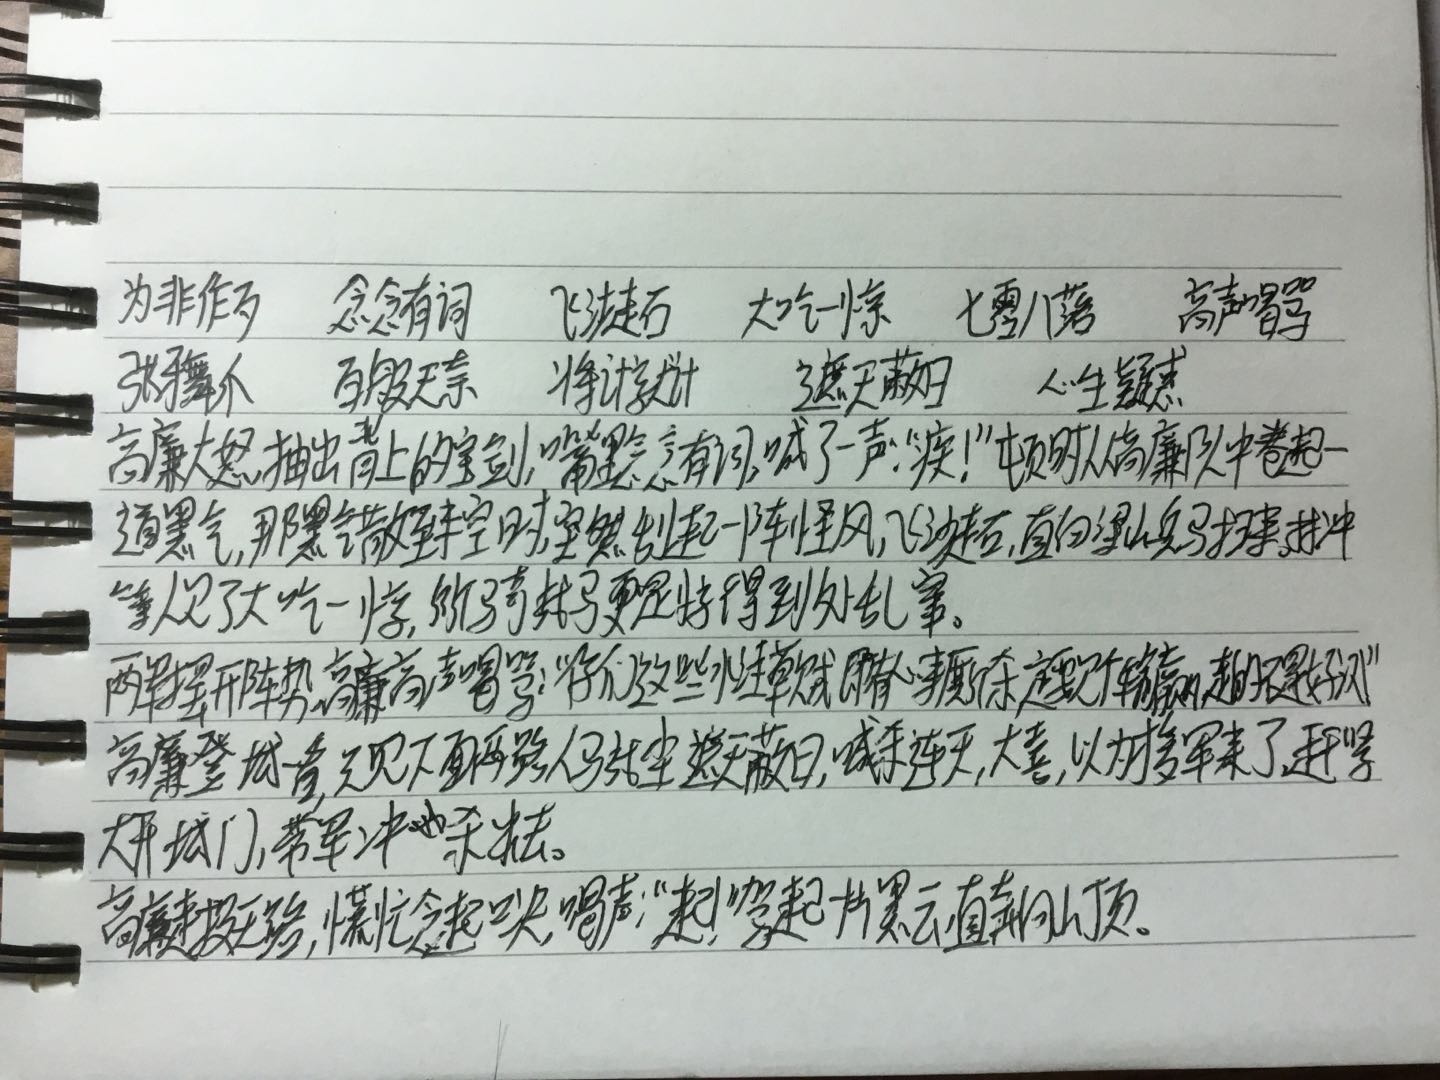 为非作歹 念念有词 飞沙走石 大吃一惊 七零八落 高声唱骂
张牙舞爪 百般无奈 将计就计 遮天蔽日 心生疑惑
高廉大怒,抽出背上的宝剑,嘴里念念有词,喊了一声:“疾!”顿时从高廉队中卷起一
道黑气,那黑气散至半空时,突然刮起一阵怪风,飞沙走石,直向梁山兵马扫来。林冲
等人见了大吃一惊,所骑战马更是惊得到处乱窜。
两军摆开阵势,高廉高声喝骂:“你们这些水洼草贼,既有心来厮杀,定要见个输赢,走的不是好汉”
高廉登城一看,只见下面两路人马战尘遮天蔽日,喊杀连天,大喜,以为援军来了,赶紧
大开城门,带军冲杀出去。
高廉走投无路,慌忙念起口诀,喝声:“起!”驾起一片黑云直奔向山顶。